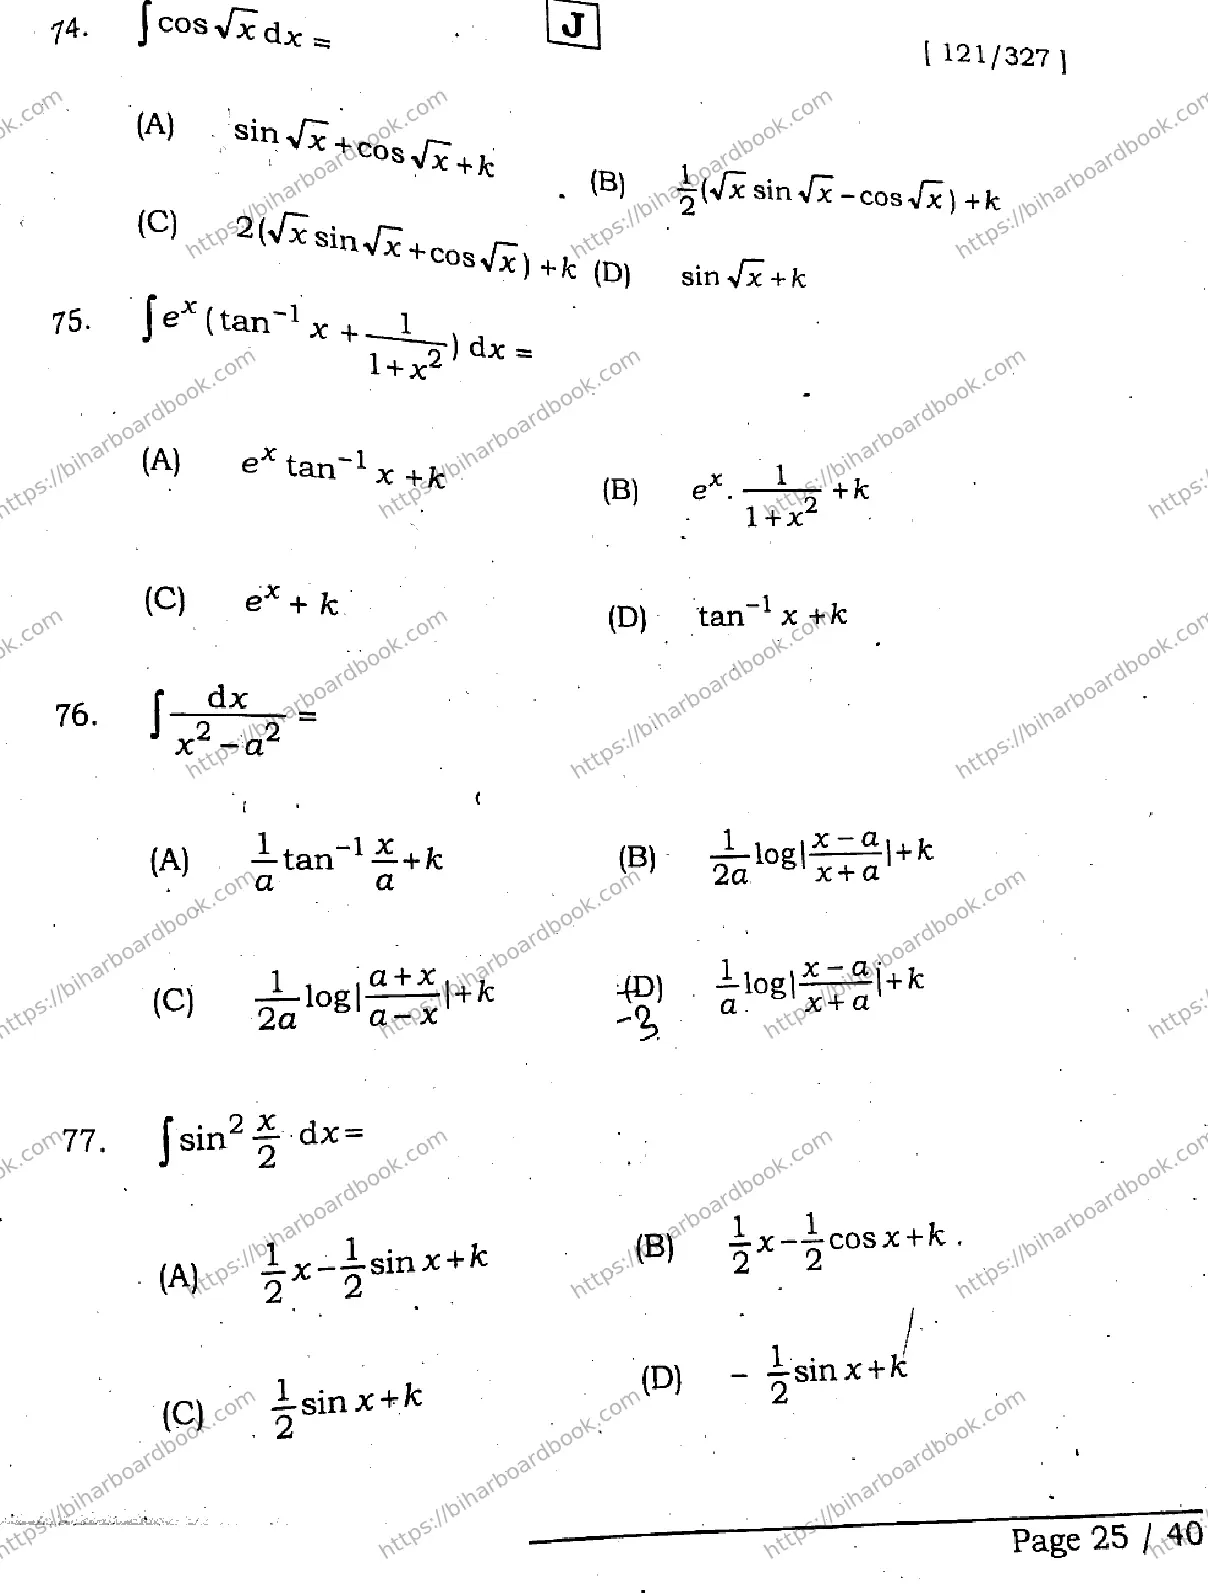 74. ∫cos √x dx =
J
[ 121/327 ]
(A) sin √x + cos √x + k
(B) 1/2 (√x sin √x - cos √x) + k
(C) 2(√x sin √x + cos √x) + k
(D) sin √x + k
75. ∫e^x (tan^-1 x + 1/(1+x^2)) dx =
(A) e^x tan^-1 x + k
(B) e^x . 1/(1+x^2) + k
(C) e^x + k
(D) tan^-1 x + k
76. ∫ dx/(x^2 - a^2) =
(A) 1/a tan^-1 x/a + k
(B) 1/2a log|(x-a)/(x+a)| + k
(C) 1/2a log|(a+x)/(a-x)| + k
(D) 1/a log|(x-a)/(x+a)| + k
77. ∫sin^2 x/2 dx =
(A) 1/2 x - 1/2 sin x + k
(B) 1/2 x - 1/2 cos x + k .
(C) 1/2 sin x + k
(D) - 1/2 sin x + k
Page 25 / 40
https://biharboardbook.com